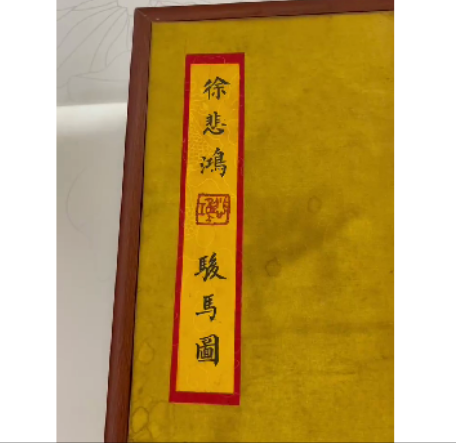 徐悲鴻
駿馬圖